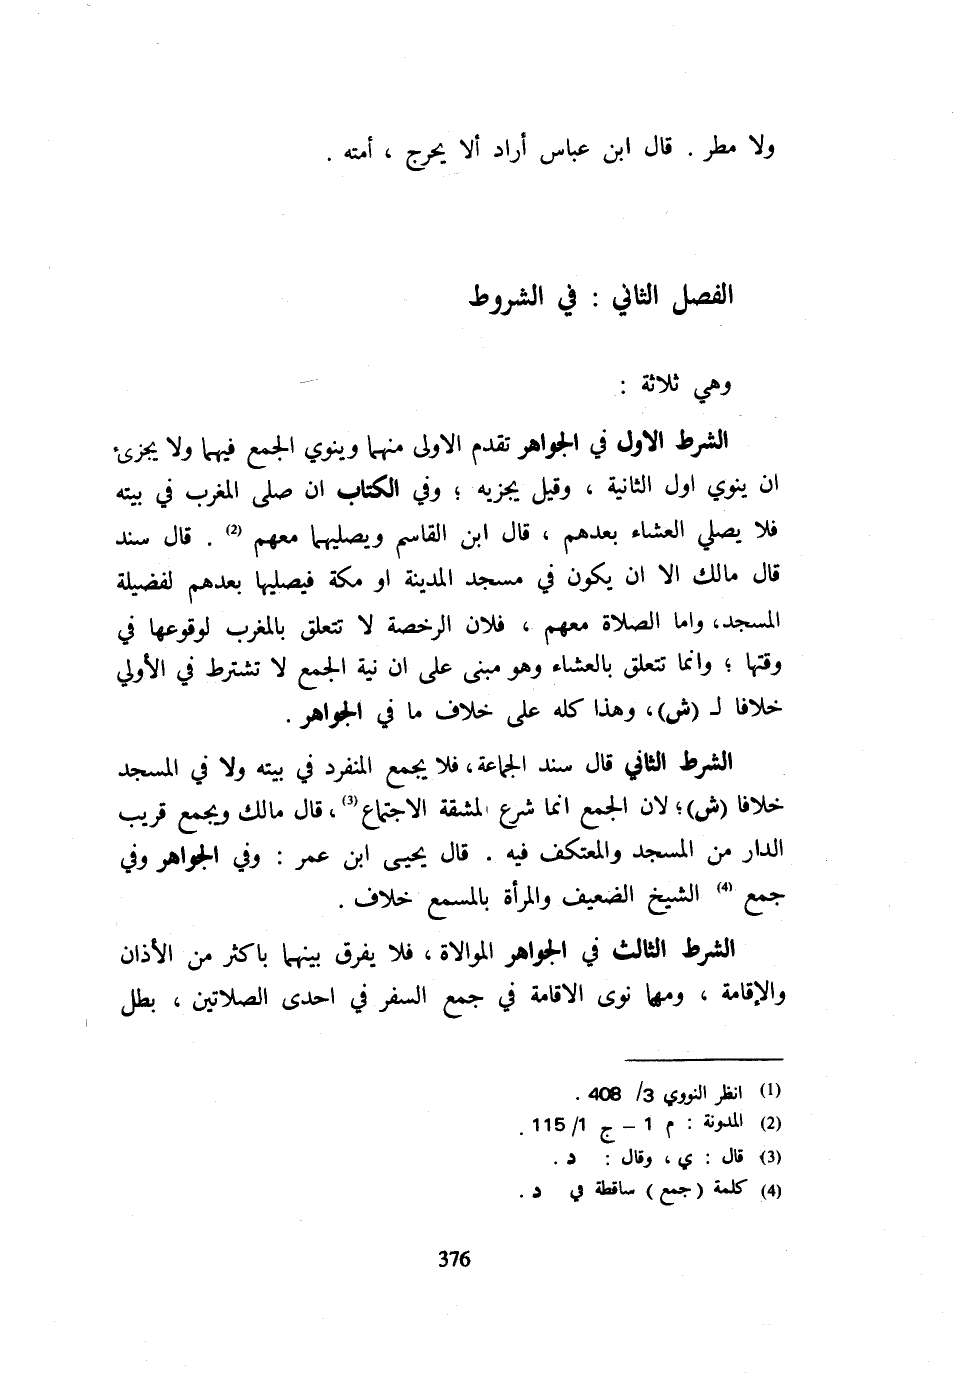 ولا مطر . قال ابن عباس أراد ألا يحرج ، أمته .
الفصل الثاني : في الشروط
وهي ثلاثة :
الشرط الاول في الجواهر تقدم الاولى منهما وينوي الجمع فيهما ولا يجزىء
ان ينوي اول الثانية ، وقيل يجزيه ؛ وفي الكتاب ان صلى المغرب في بيته
فلا يصلي العشاء بعدهم ، قال ابن القاسم ويصليهما معهم (2) . قال سند
قال مالك الا ان يكون في مسجد المدينة او مكة فيصليها بعدهم لفضيلة
المسجد، واما الصلاة معهم ، فلان الرخصة لا تتعلق بالمغرب لوقوعها في
وقتها ؛ وانما تتعلق بالعشاء وهو مبنى على ان نية الجمع لا تشترط في الأولي
خلافا لـ (ش)، وهذا كله على خلاف ما في الجواهر .
الشرط الثاني قال سند الجماعة، فلا يجمع المنفرد في بيته ولا في المسجد
خلافا (ش)؛ لان الجمع انما شرع لمشقة الاجتماع(3)، قال مالك ويجمع قريب
الدار من المسجد والمعتكف فيه . قال يحيى ابن عمر : وفي الجواهر وفي
جمع (4) الشيخ الضعيف والمرأة بالمسمع خلاف .
الشرط الثالث في الجواهر الموالاة ، فلا يفرق بينهما باكثر من الأذان
والإقامة ، ومهما نوى الاقامة في جمع السفر في احدى الصلاتين ، بطل
(1) انظر النووي 3/ 408 .
(2) المدونة : م 1 – ج 1/ 115 .
(3) قال : ي ، وقال : د .
(4) كلمة ( جمع ) ساقطة في د .
376